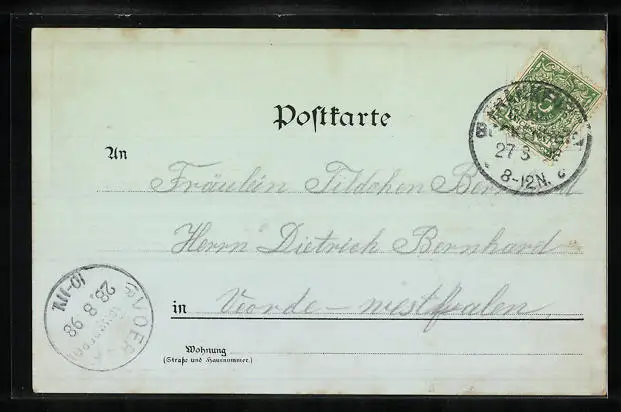 Postkarte
An
Fräulein Tildchen Bernhard
Herrn Dietrich Bernhard
in Voerde – Westfalen
Wohnung
(Straße und Hausnummer.)
27 8 98
8-12N.
VOERDE
28.8.98
10-11V.